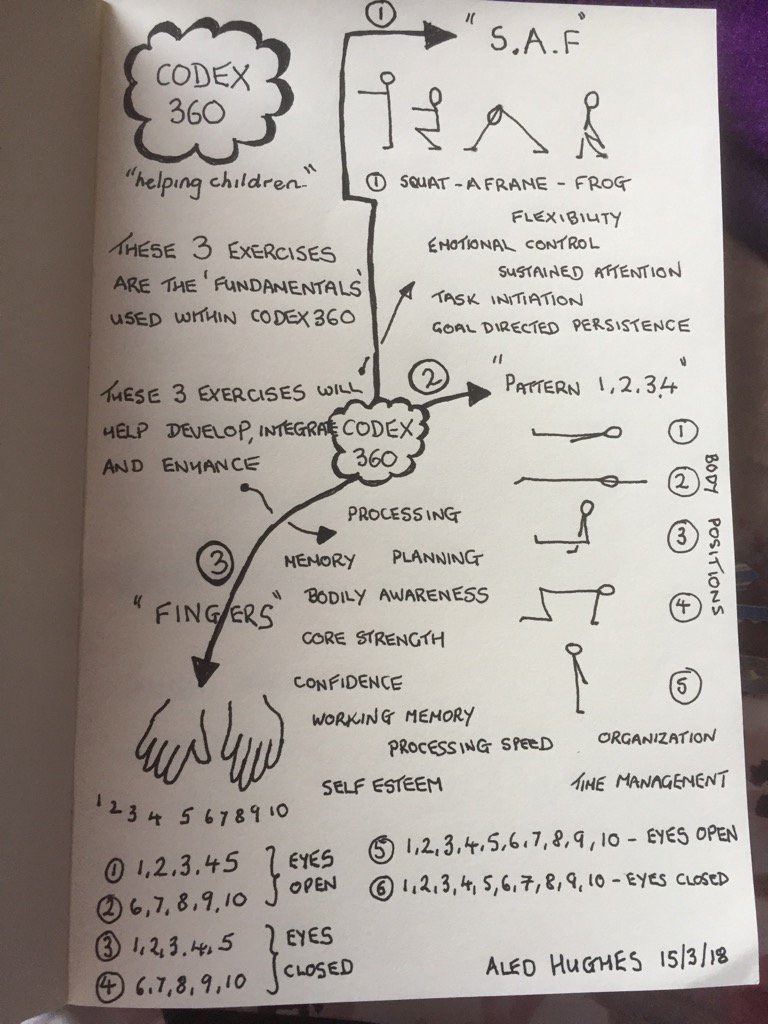 CODEX
360
"helping children"
THESE 3 EXERCISES
ARE THE 'FUNDAMENTALS'
USED WITHIN CODEX360
THESE 3 EXERCISES WILL
HELP DEVELOP, INTEGRATE
AND ENHANCE
CODEX
360
1
"S.A.F"
1 SQUAT-AFRANE-FROG
FLEXIBILITY
EMOTIONAL CONTROL
SUSTAINED ATTENTION
TASK INITIATION
GOAL DIRECTED PERSISTENCE
2
"PATTERN 1,2,3,4"
1
2
3
4
5
BODY POSITIONS
PROCESSING
MEMORY PLANNING
BODILY AWARENESS
CORE STRENGTH
CONFIDENCE
WORKING MEMORY
PROCESSING SPEED ORGANIZATION
SELF ESTEEM TIME MANAGEMENT
3
"FINGERS"
1 2 3 4 5 6 7 8 9 10
1 1,2,3,4 5
2 6,7,8,9,10
EYES
OPEN
3 1,2,3,4,5
4 6,7,8,9,10
EYES
CLOSED
5 1,2,3,4,5,6,7,8,9,10 - EYES OPEN
6 1,2,3,4,5,6,7,8,9,10 - EYES CLOSED
ALED HUGHES 15/3/18